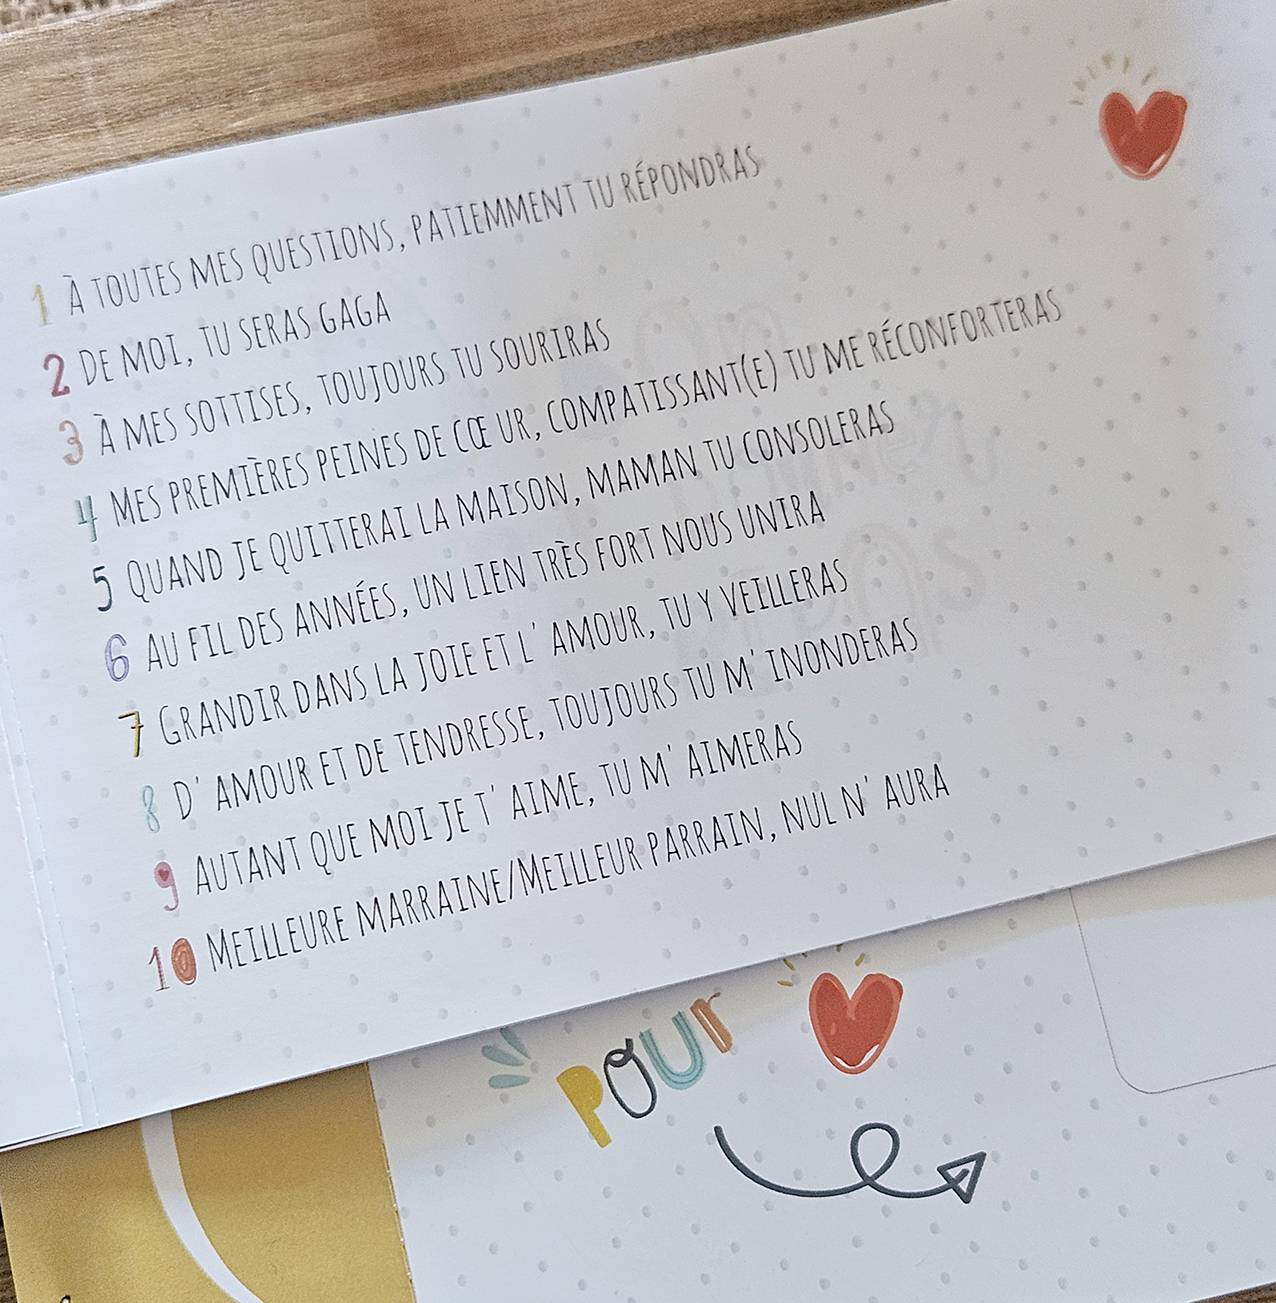 1 À TOUTES MES QUESTIONS, PATIEMMENT TU RÉPONDRAS
2 DE MOI, TU SERAS GAGA
3 À MES SOTTISES, TOUJOURS TU SOURIRAS
4 MES PREMIÈRES PEINES DE CŒUR, COMPATISSANT(E) TU ME RÉCONFORTERAS
5 QUAND JE QUITTERAI LA MAISON, MAMAN TU CONSOLERAS
6 AU FIL DES ANNÉES, UN LIEN TRÈS FORT NOUS UNIRA
7 GRANDIR DANS LA JOIE ET L'AMOUR, TU Y VEILLERAS
8 D'AMOUR ET DE TENDRESSE, TOUJOURS TU M'INONDERAS
9 AUTANT QUE MOI JE T'AIME, TU M'AIMERAS
10 MEILLEURE MARRAINE/MEILLEUR PARRAIN, NUL N'AURA
POUr